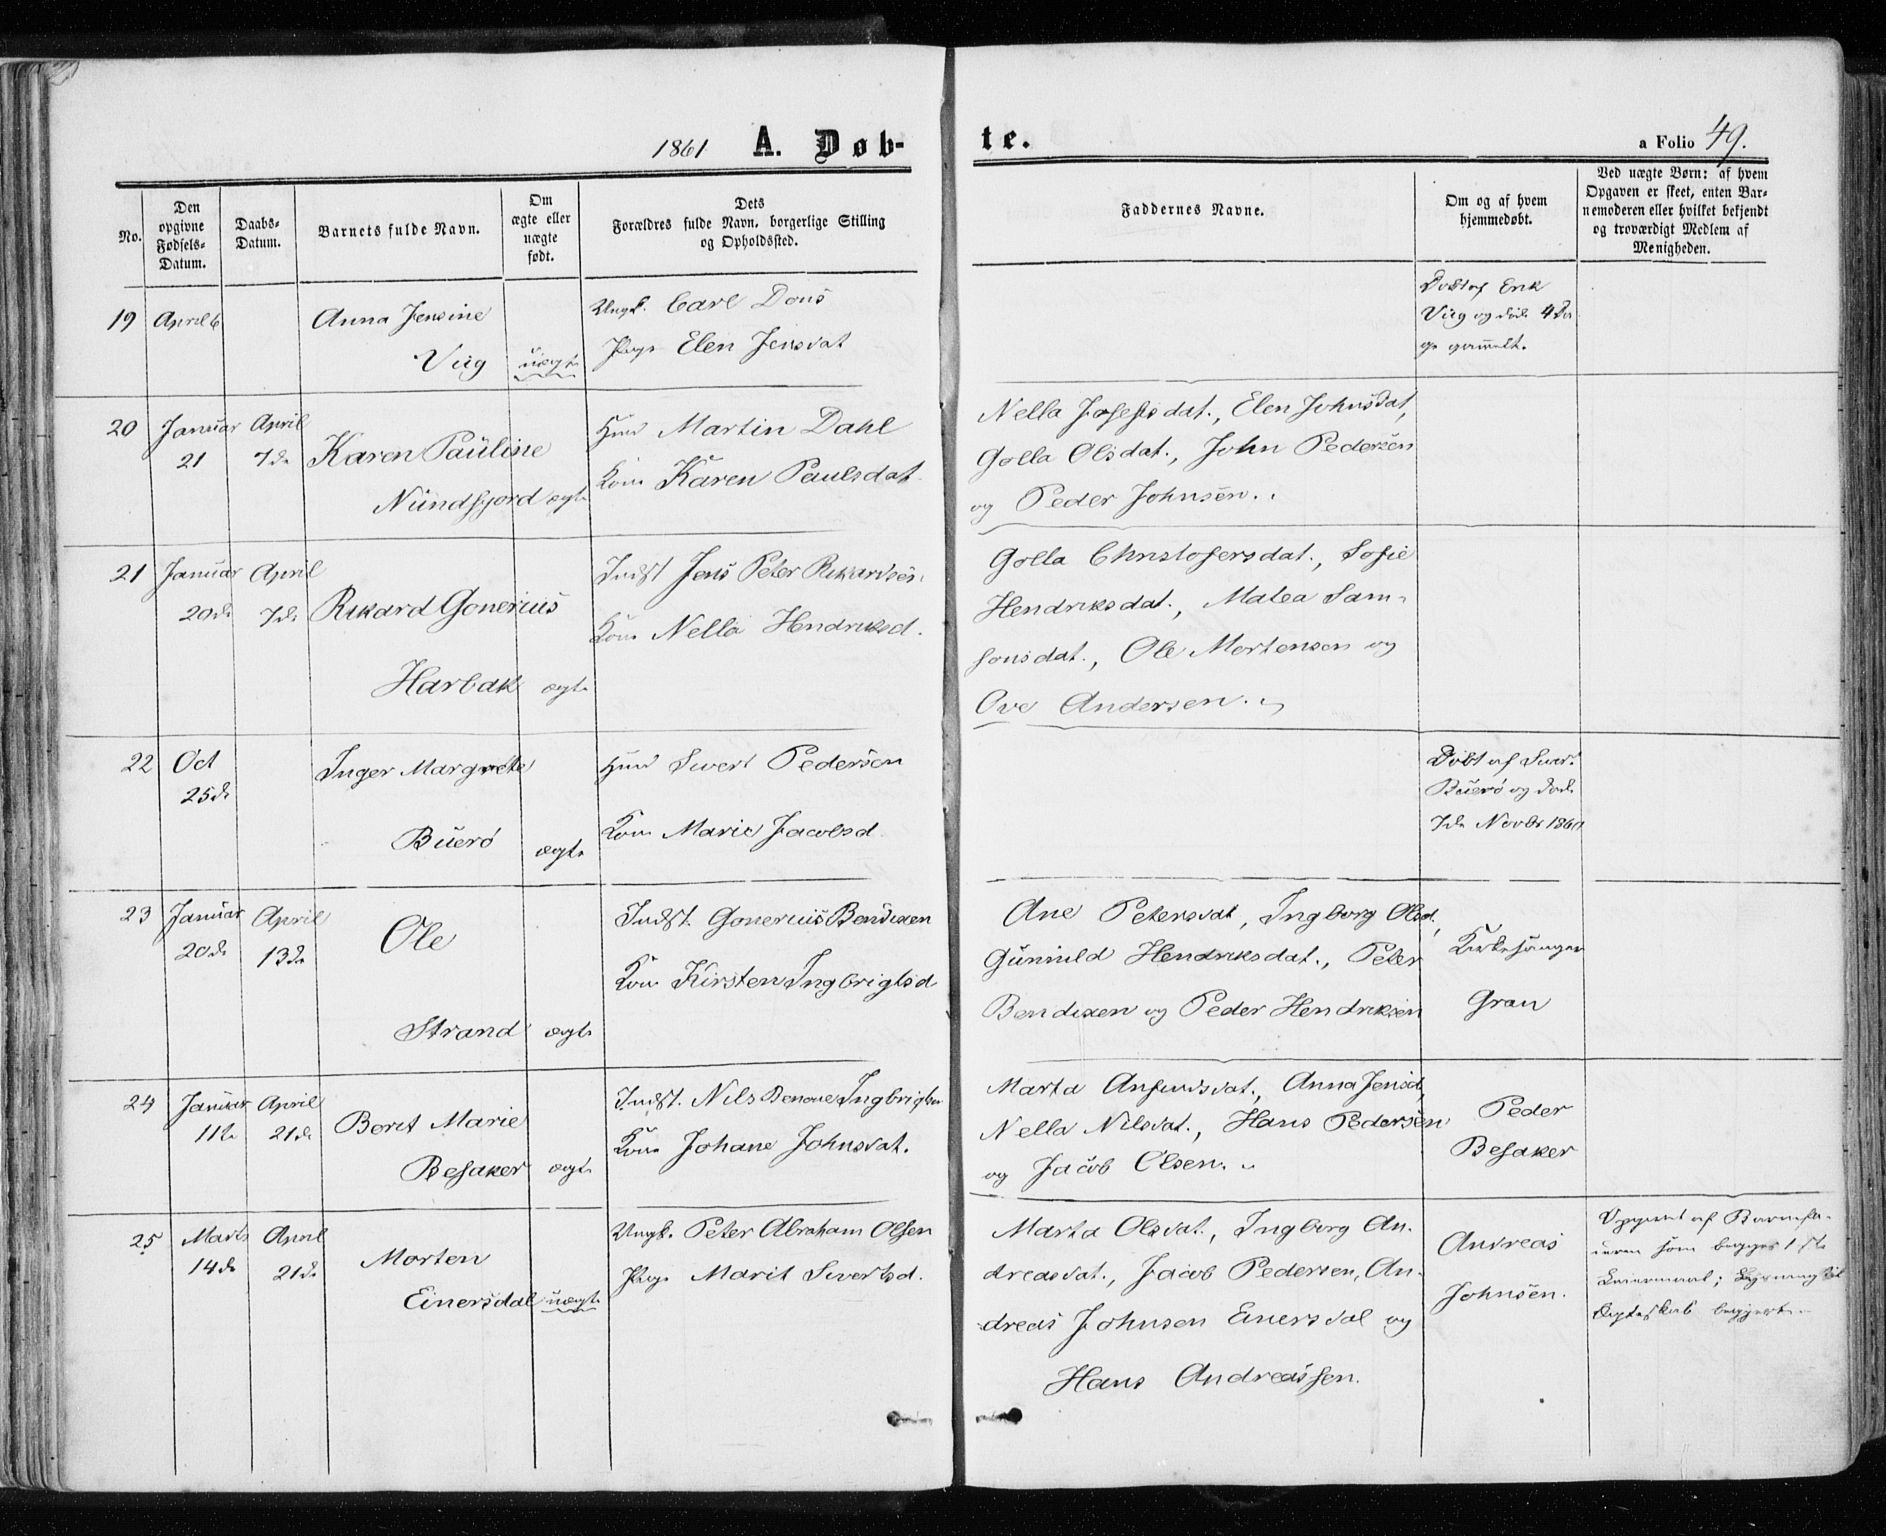 1861 A. Døb-
te.
a Folio 49.
No.
Den
opgivne
Fødsels-
Datum.
Daabs-
Datum.
Barnets fulde Navn.
Om
ægte eller
uægte
født.
Dets
Forældres fulde Navn, borgerlige Stilling
og Opholdssted.
Faddernes Navne.
Om og af hvem
hjemmedøbt.
Ved uægte Børn: af hvem
Opgaven er skeet, enten Bar-
nemoderen eller hvilket bekjendt
og troværdigt Medlem af
Menigheden.
19
April 6
Anna Jensine
Viig
uægte
Ungk. Carl Dons
Pige Elen Jensdat
Døbt af Erik
Viig og døde 4 Da
ge gammelt.
20
Januar
21
April
7de
Karen Pauline
Nündfjord
ægte
Huus Martin Dahl
Kone Karen Paulsdat.
Nella Josefsdat., Elen Johnsdat,
Golla Olsdat., John Pedersen
og Peder Johnsen.
21
Januar
20de
April
7de
Rikard Gonerius
Harbak
ægte
Indst Jens Peter Rikardsen
Kone Nella Hendriksd.
Golla Christofersdat., Sofie
Hendriksdat., Malea Sam-
sonsdat., Ole Mortensen og
Ove Andersen.
22
Oct
25de
Inger Margrete
Büerø
ægte
Huus Sivert Pedersen
Kone Marie Jacobsd
Döbt af Sivert
Büerø og døde
7de Novbr 1860
23
Januar
20de
April
13de
Ole
Strand
ægte
Indst. Gonerius Bendixen
Kone Kirsten Ingbrigtsd
Ane Petersdat, Ingborg Olsd,
Gunnild Hendriksdat., Peter
Bendixen og Peder Hendriksen
Kirkesanger
Gran
24
Januar
11te
April
21de
Beret Marie
Besaker
ægte
Indst. Nils Benone Ingbrigtsen
Kone Johane Johnsdat.
Marta Anfindsdat., Anna Jensd,
Nella Nilsdat., Hans Pedersen
og Jacob Olsen.
Peder
Besaker
25
Marts
14de
April
21de
Morten
Einersdal
uægte
Ungk. Peter Abraham Olsen
Pige Marit Sivertsd.
Marta Olsdat., Ingborg An-
dreasdat., Jacob Pedersen, An-
dreas Johnsen Einersdal og
Hans Andreassen.
Andreas
Johnsen.
Opgivet af Barnefa-
deren som begges 1ste
Leiermaal; Lysning til
Ægteskab begjert